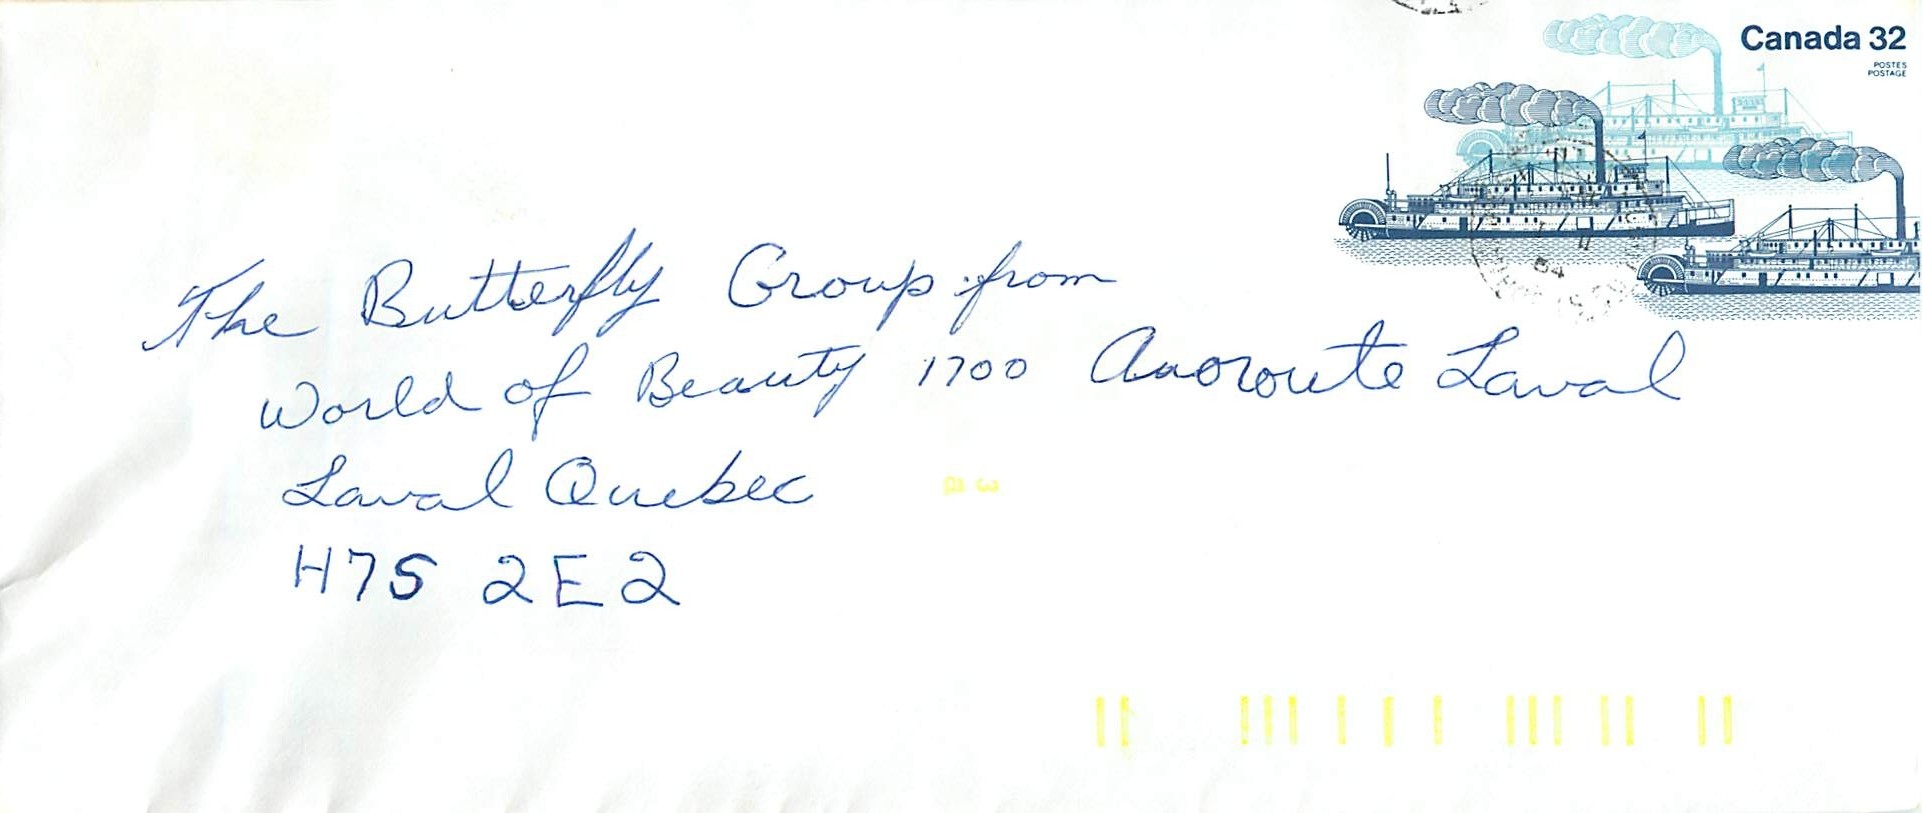 Canada 32
POSTES
POSTAGE
84
The Butterfly Group from
World of Beauty 1700 Auoroute Laval
Laval Quebec
H7S 2E2